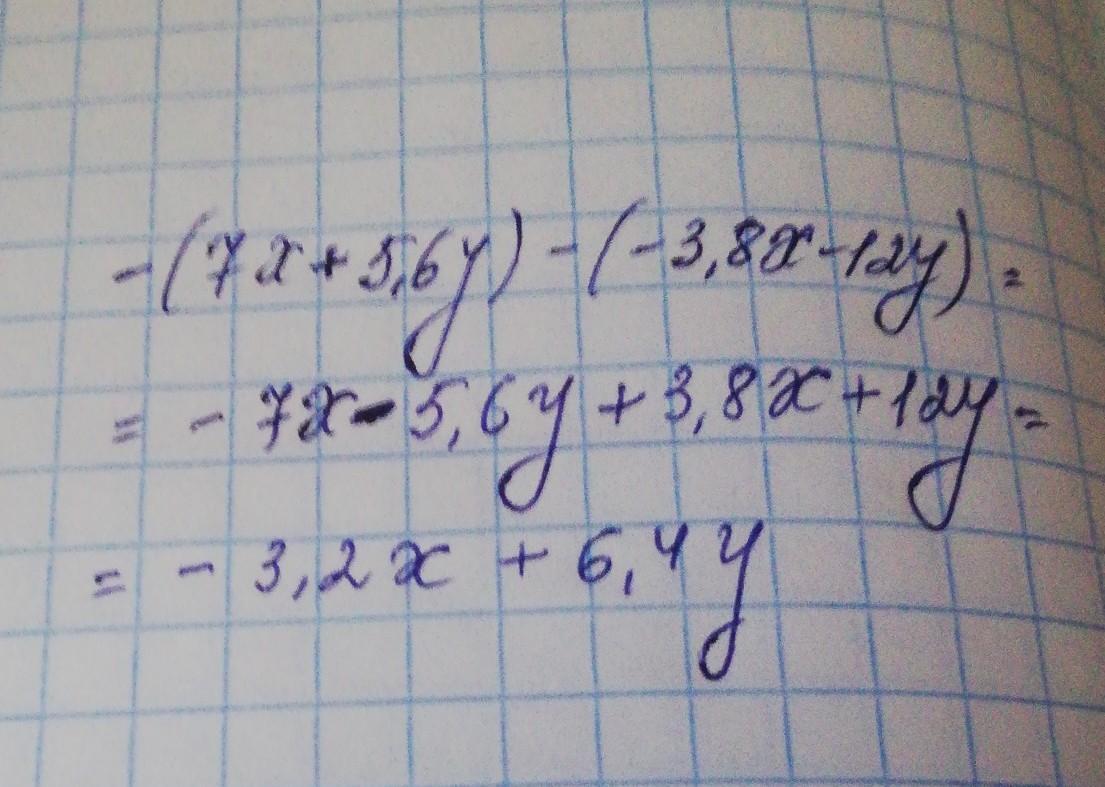 -(7x+5,6y)-(-3,8x-12y)=
= - 7x-5,6y+3,8x+12y=
= - 3,2x + 6,4y